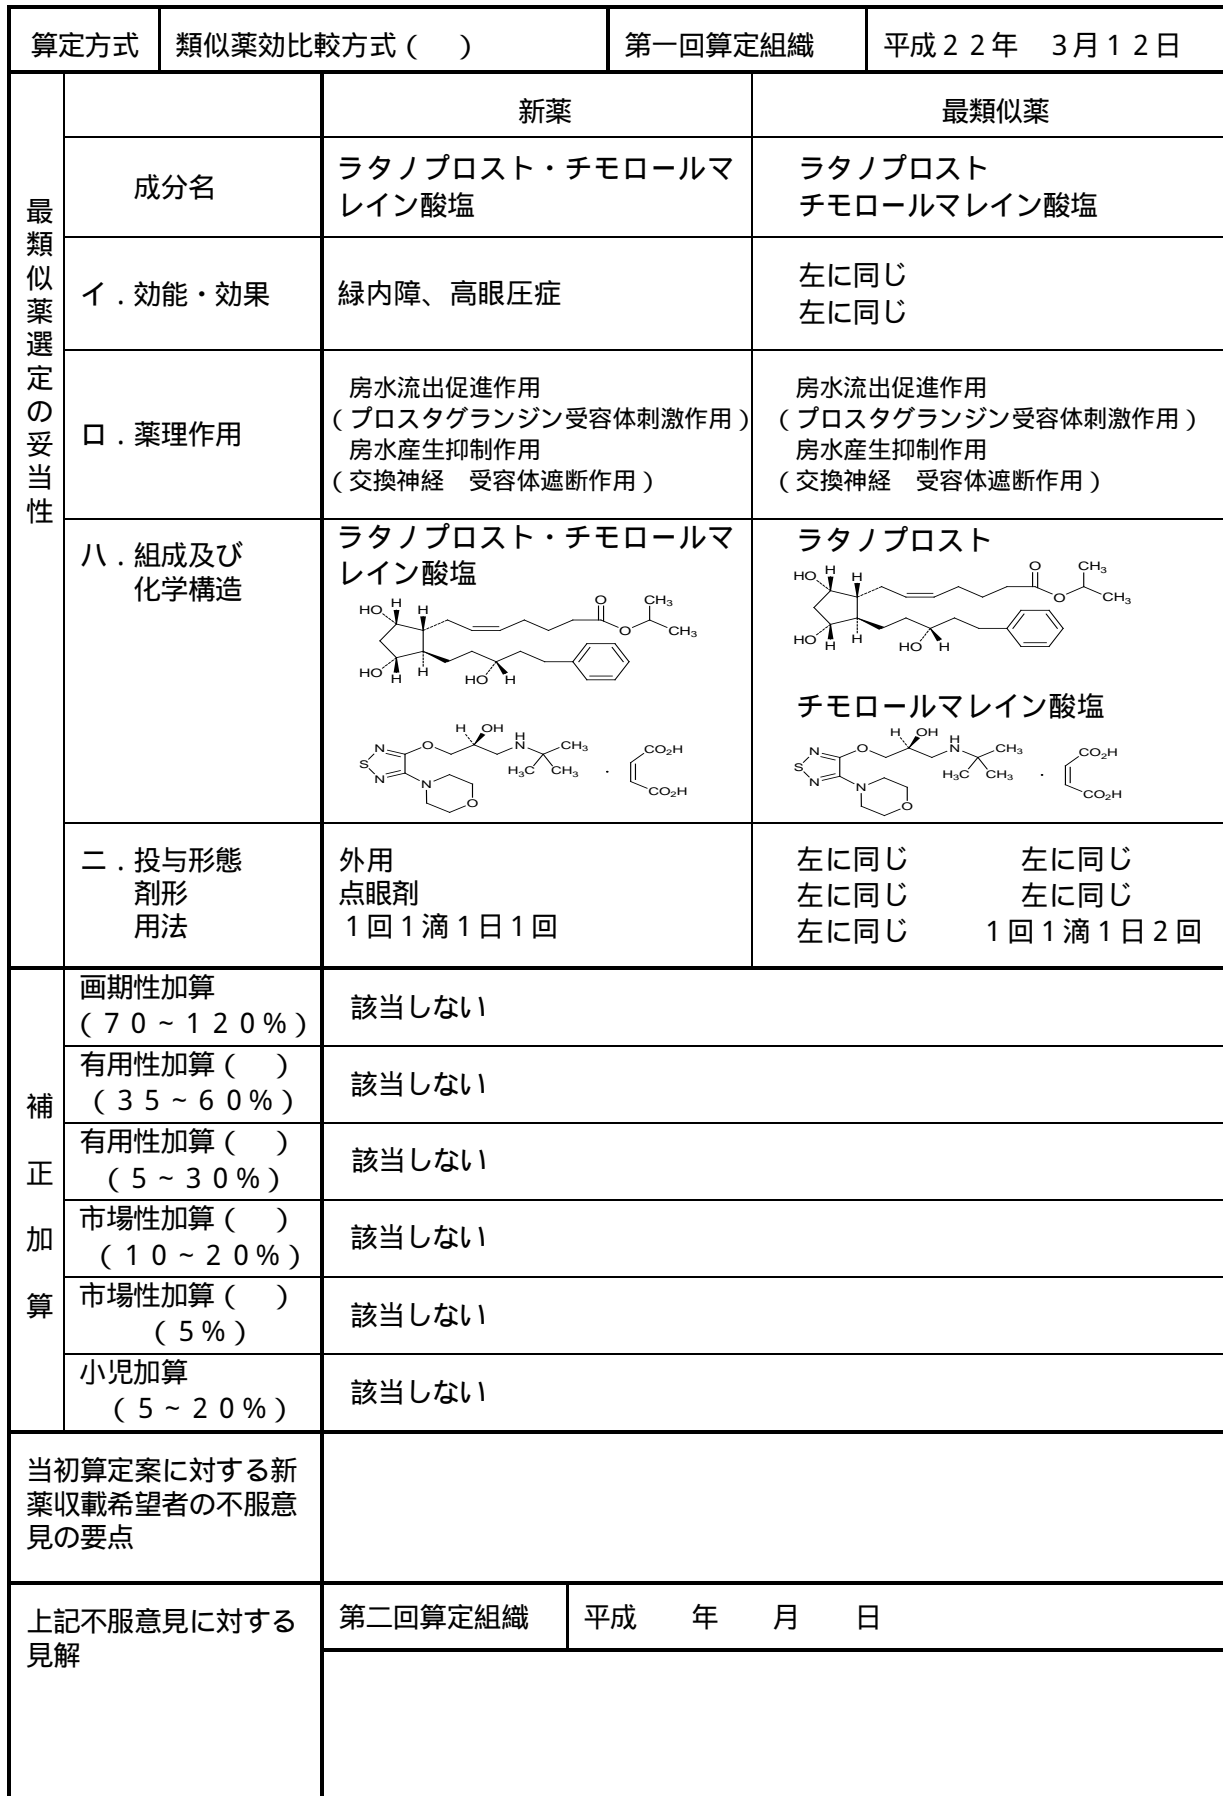 算定方式 類似薬効比較方式（　） 第一回算定組織 平成２２年　３月１２日
最類似薬選定の妥当性
新薬 最類似薬
成分名
ラタノプロスト・チモロールマ
レイン酸塩
ラタノプロスト
チモロールマレイン酸塩
イ．効能・効果
緑内障、高眼圧症
左に同じ
左に同じ
ロ．薬理作用
房水流出促進作用
（プロスタグランジン受容体刺激作用）
房水産生抑制作用
（交換神経　受容体遮断作用）
房水流出促進作用
（プロスタグランジン受容体刺激作用）
房水産生抑制作用
（交換神経　受容体遮断作用）
ハ．組成及び
化学構造
ラタノプロスト・チモロールマ
レイン酸塩
HO H H O CH₃
O CH₃
HO H H HO H
H OH H
N O N CH₃
S H₃C CH₃ CO₂H
N N ・
O CO₂H
ラタノプロスト
HO H H O CH₃
O CH₃
HO H H HO H
チモロールマレイン酸塩
H OH H
N O N CH₃
S H₃C CH₃ CO₂H
N N ・
O CO₂H
ニ．投与形態
剤形
用法
外用
点眼剤
１回１滴１日１回
左に同じ　左に同じ
左に同じ　左に同じ
左に同じ　１回１滴１日２回
補正加算
画期性加算
（７０～１２０％）
該当しない
有用性加算（　）
（３５～６０％）
該当しない
有用性加算（　）
（５～３０％）
該当しない
市場性加算（　）
（１０～２０％）
該当しない
市場性加算（　）
（５％）
該当しない
小児加算
（５～２０％）
該当しない
当初算定案に対する新
薬収載希望者の不服意
見の要点
上記不服意見に対する
見解
第二回算定組織 平成　　年　　月　　日